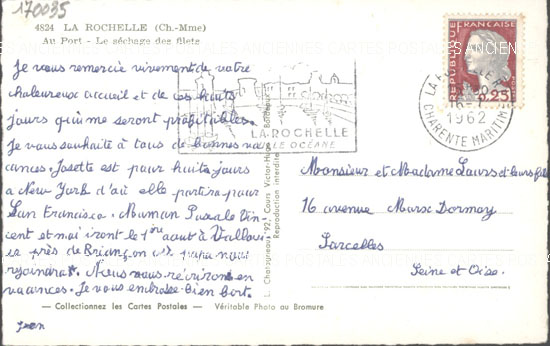 170035
4824 LA ROCHELLE (Ch.-Mme)
Au Port - Le séchage des filets
Je vous remercie vivement de votre
chaleureux accueil et de ces huits
jours qui me seront profitables.
Je vous souhaite à tous de bonnes va
cances. Josette est pour huit jours
a New York d'où elle partira pour
San Francisco. Maman Pascale Vin-
cent et moi irons le 1er aout à Vallou
ise près de Briançon où papa nous
rejoindra. Nous nous récrirons en
vacances. Je vous embrasse bien fort.
Jean
— Collectionnez les Cartes Postales — Véritable Photo au Bromure
L. Chatagneau, 92, Cours Victor-Hugo, Bordeaux
Reproduction interdite
LA ROCHELLE
OCÉANE
REPUBLIQUE FRANÇAISE
0,25
LA ROCHELLE
1962
CHARENTE MARITIME
Monsieur et Madame Laurs et leurs fils
16 avenue Marx Dormoy
Sarcelles
Seine et Oise.
CARTES POSTALES ANCIENNES CARTES POSTALES ANCIENNES